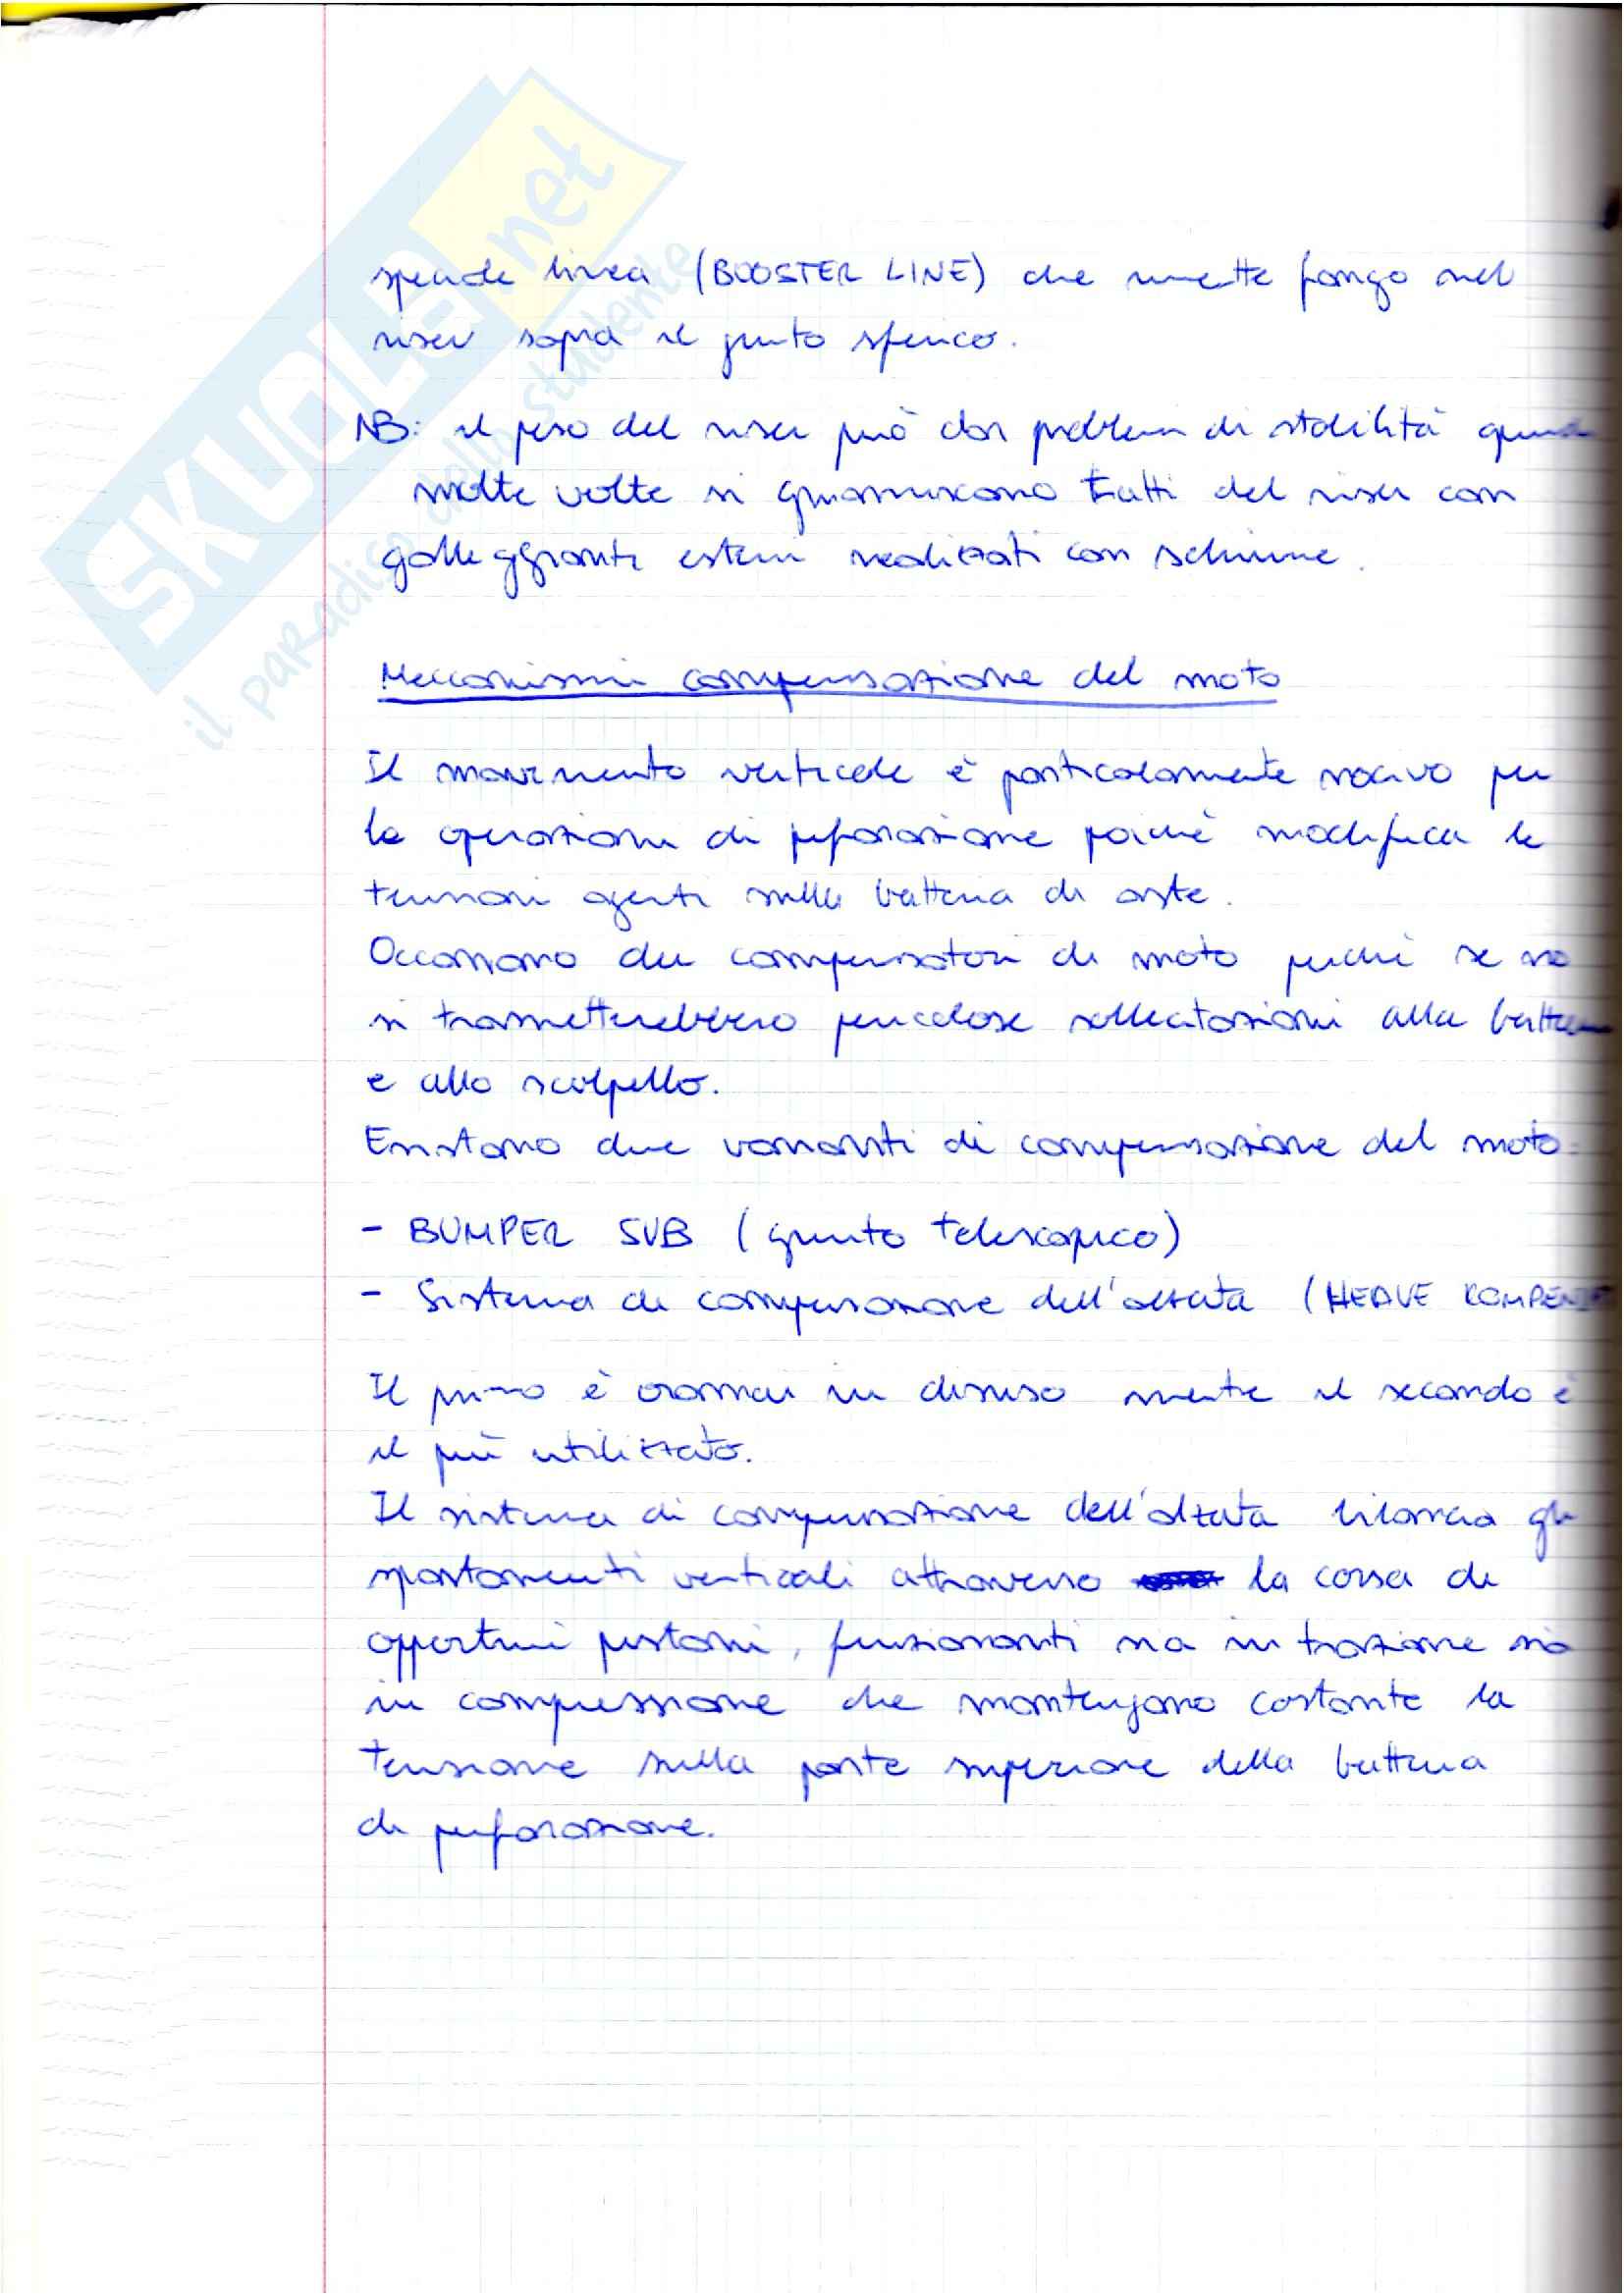 speciale linea (BOOSTER LINE) che immette fango nel
riser sopra il giunto sferico.
NB: il peso del riser può dar problemi di stabilità
molte volte si guarniscono tratti del riser con
galleggianti esterni realizzati con schiume.
Meccanismi compensazione del moto
Il movimento verticale è particolarmente nocivo per
le operazioni di perforazione poiché modifica le
tensioni agenti sulla batteria di aste.
Occorrono dei compensatori di moto perché se no
si trasmetterebbero pericolose sollecitazioni alla
e allo scalpello.
Esistono due varianti di compensazione del moto:
- BUMPER SUB (giunto telescopico)
- Sistema di compensazione dell'alzata (HEAVE
Il primo è oramai in disuso mentre il secondo è
il più utilizzato.
Il sistema di compensazione dell'alzata bilancia gli
spostamenti verticali attraverso la corsa di
opportuni pistoni, funzionanti sia in trazione sia
in compressione che mantengono costante la
tensione sulla parte superiore della batteria
di perforazione.
SKUOLA.net
il paradiso dello studente